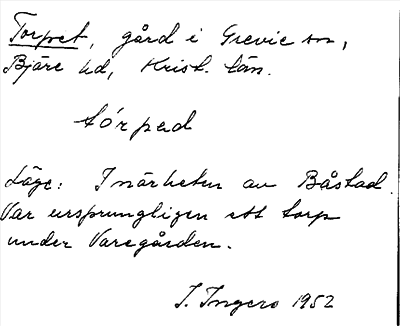 Torpet, gård i Grevie sn,
Bjäre hd, Krist. län.
tórped
Läge: I närheten av Båstad.
Var ursprungligen ett torp
under Varegården.
I. Ingers 1952